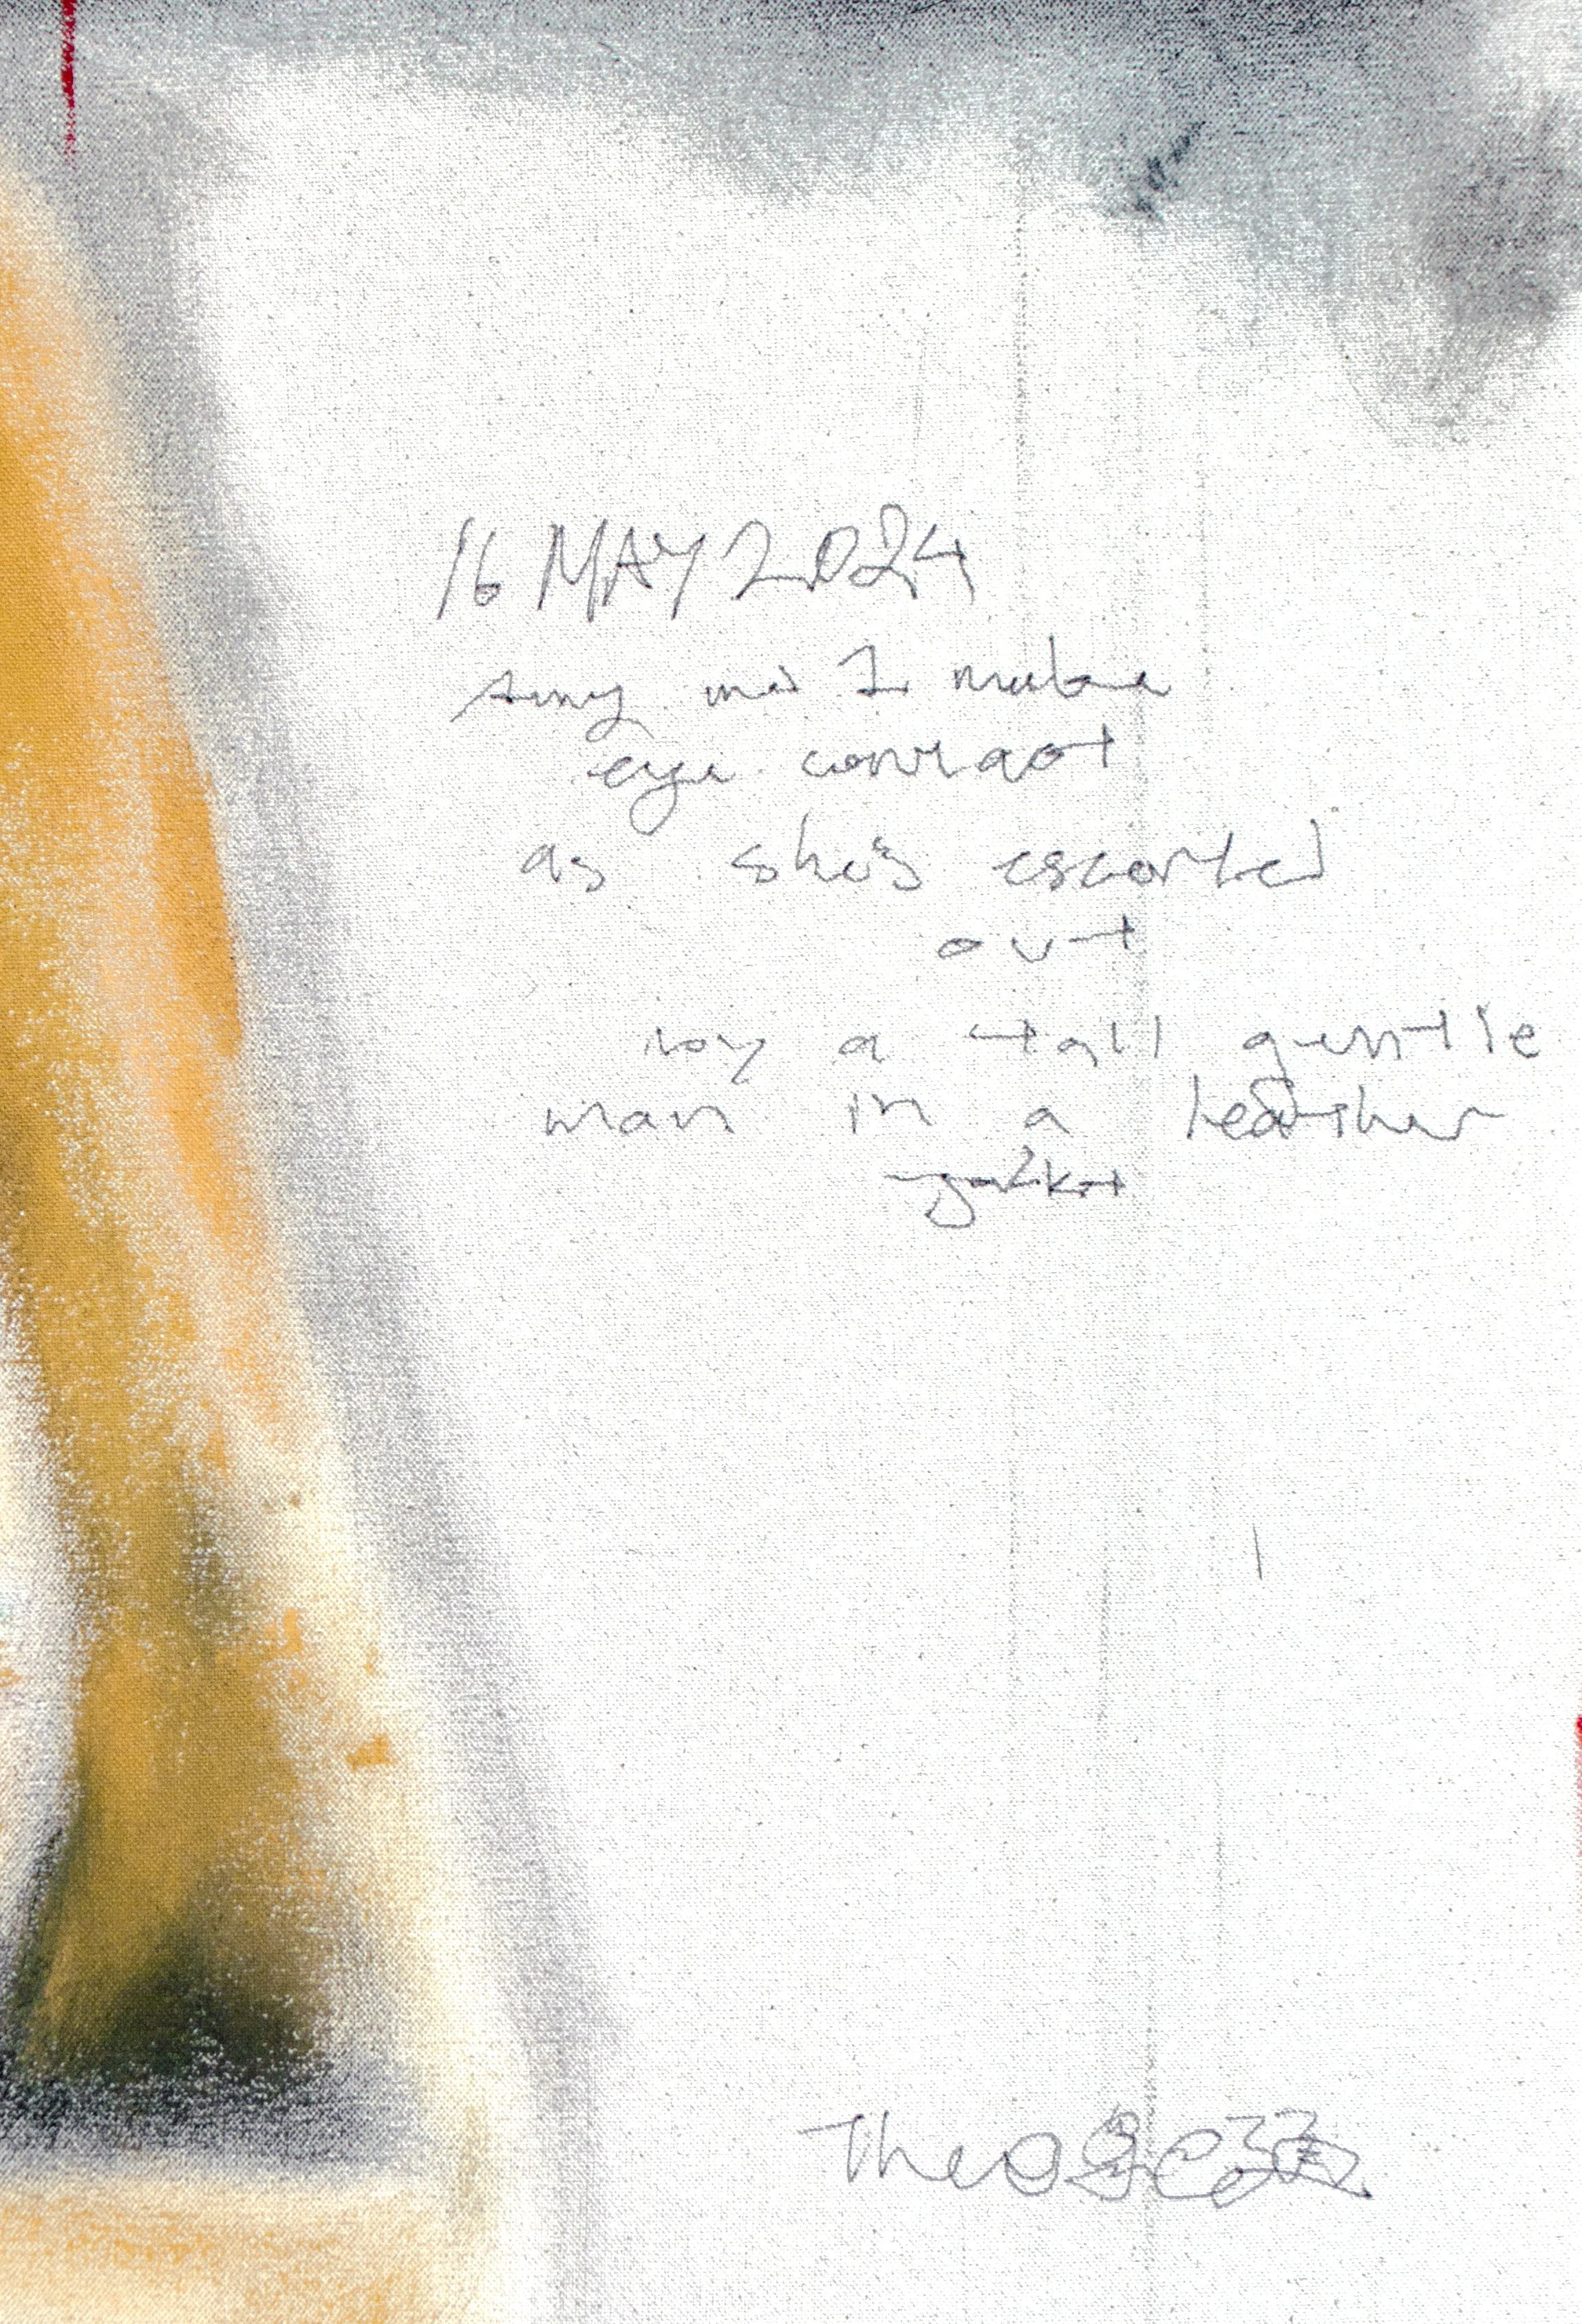 16 MAY 2024
Amy and I make
eye contact
as she's escorted
out
by a tall gentle
man in a leather
jacket
Theo